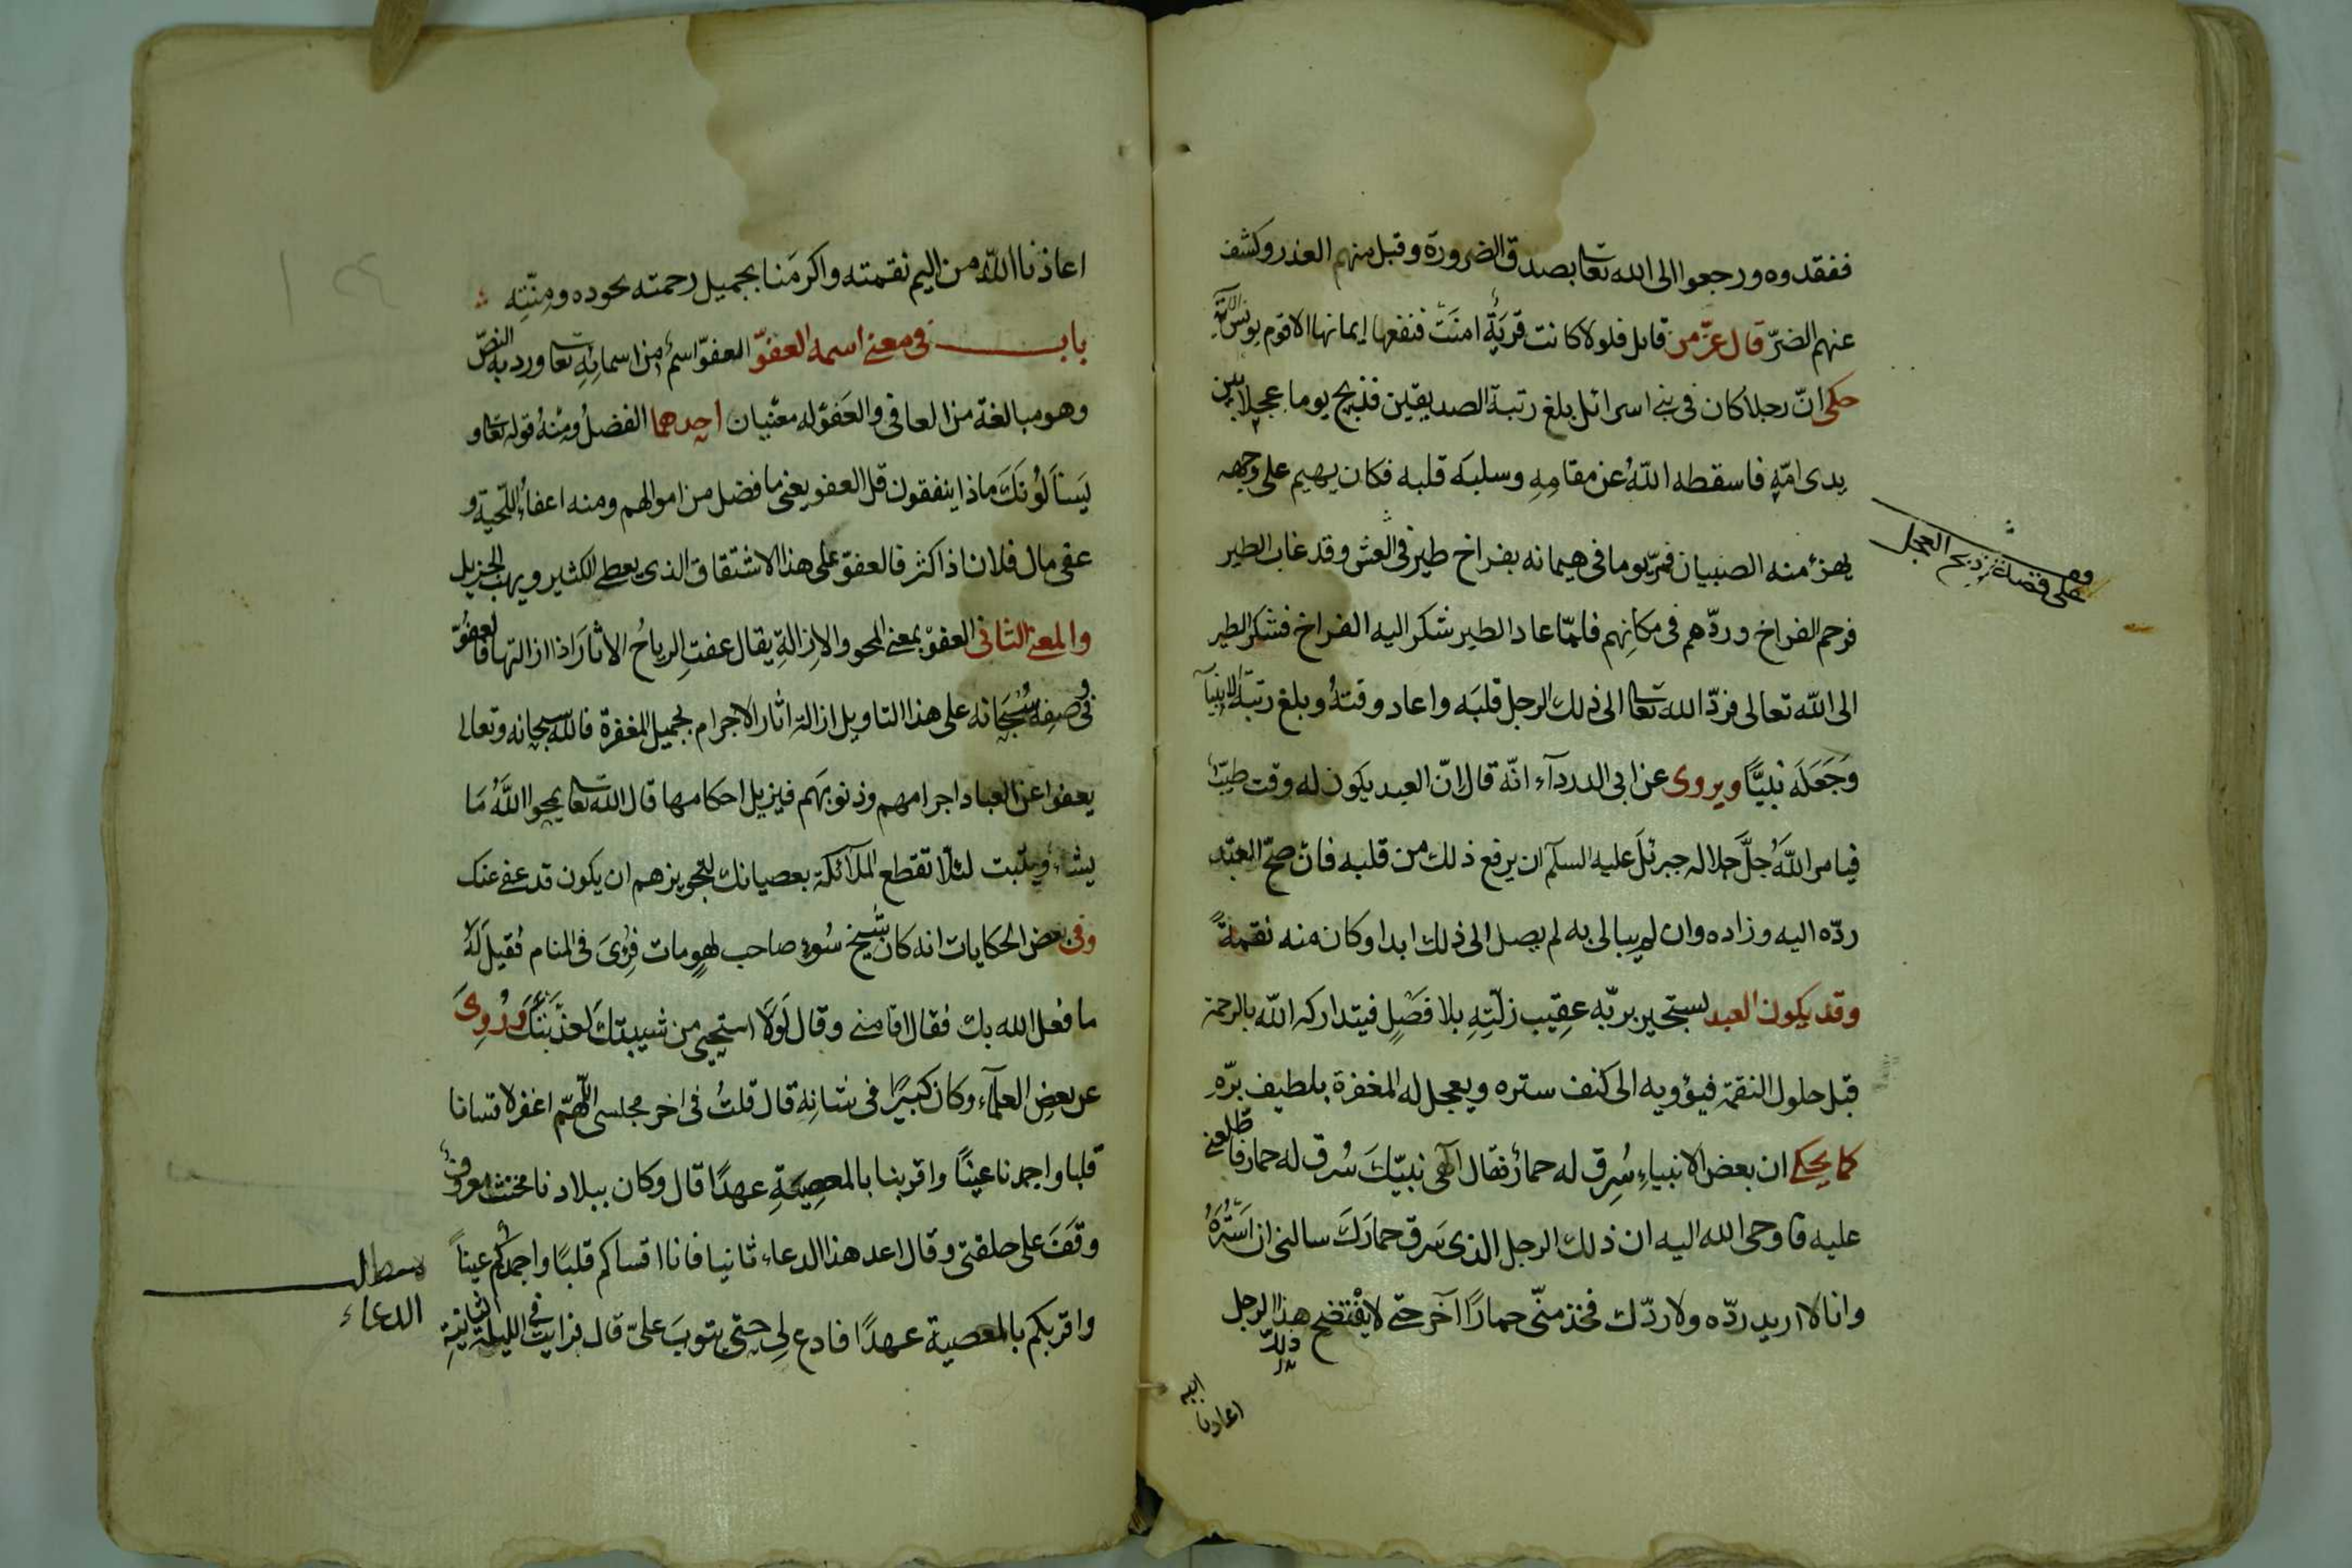 ففقدوه ورجعوا الى الله تعا بصدق الضرورة وقبل منهم العذر وكشف
عنهم الضرّ قال عزّ من قائل فلولا كانت قريةٌ امنَتْ فنفعها إيمانها الا قوم يونس الآية
حكى انّ رجلا كان فى بنى اسرائل بلغ رتبة الصديقين فذبح يوما عجلا بين
يدى امّهِ فاسقطه اللهُ عن مقامِهِ وسلبَه قلبه فكان يهيم على وجهه
يهزؤ منه الصبيان فمرّ يوما فى هيمانه بفراخ طير فى العش وقد غاب الطير
فرحم الفراخ وردّهم فى مكانِهم فلمّا عاد الطير شكر اليه الفراخ فشكر الطير
الى الله تعالى فردّ الله تعا الى ذلك الرجل قلبَه واعاد وقتهُ وبلغ رتبة الانبيآء
وَجَعَلَه نبيًّا ويروى عن ابى الدردآء انّه قال انّ العبد يكون له وقت طيب
فيامر اللهُ جلَّ جلاله جبرئلَ عليه السلآم ان يرفع ذلك من قلبه فان صحّ العبد
ردّه اليه وزاده وان لم يبالى به لم يصل الى ذلك ابدا وكان منه نقمةً
وقد يكون العبد يستجير بربّه عقِيب زلّتِهِ بلا فَصْلٍ فيتداركه الله بالرحمة
قبل حلول النقمة فيؤويه الى كنف ستره ويعجل له المغفرة بلطيف برّهِ
كما يحكى ان بعض الانبياءِ سُرِق له حمارٌ فقال الهى نبيّكَ سُرق له حمار فاطلعنى
عليه فاوحى الله اليه ان ذلك الرجل الذى سَرق حمارَكَ سالنى ان استُرَهُ
وانا لا اريد ردّه ولا ردّك فخذ منّى حمارًا آخر حتى لا يفْتَضح هذا الرجل
على قصة ذبح العجل
اعاذنا
اعاذنا الله من اليم نقمته واكرمَنا بجميل رحمته بجوده ومِنّتِه
باب فى معنى اسمه العفوّ العفوّ اسمٌ من اسمائِهِ تعا ورد به النصّ
وهو مبالغة من العافى والعَفوّ له معنيان احدهما الفضلُ ومِنْهُ قوله تعا و
يَسئَلُونَكَ ماذا ينفقون قل العفو يعنى ما فضل من اموالهم ومنه اعفاءُ اللّحية و
عفى مال فلان اذا كثر فالعفوّ على هذا الاشتقاق الذى يعطى الكثير ويهب الجزيل
والمعنى الثانى العفوّ بمعنى المحو والازالةِ يقال عفتِ الرياحُ الاثارَ اذا ازالتها فالعفوّ
فى وصفِهِ سُبحَانه على هذا التاويل ازالة اثار الاجرام بجميل المغفرة فالله سبحانه وتعالى
يعفوا عن العباد اجرامهم وذنوبهَم فيزيل احكامها قال الله تعا يمحوا اللهُ مَا
يشاء ويثبت لئلّا تقطع الملآئكة بعصيانك لتجويزهم ان يكون قد عفى عنك
وفى بعض الحكايات انه كان شيخ سُوءٍ صاحب لهوٍ مات فرُؤىَ فى المنام فقيلَ لهُ
ما فعل الله بك فقال اقامنى وقال لَولَا استحيى من شيبتكَ لعذّبتُكَ ورُوِىَ
عن بعض العلمآء وكان كبيرًا فى شانِهِ قال قلتُ فى اخر مجلسى اللّهمّ اغفر لاقسانا
قلبا واجمدنا عينًا واقربنا بالمعصِيَةِ عهدًا قال وكان ببلادنا مخنث معروفٌ
وقَفَ على حلقتى وقال اعد هذا الدعاء ثانيا فانا اقساكم قلبًا واجمدُكم عيناً
واقربكم بالمعصية عهدًا فادع لى حتى يتوبَ علىّ قال فرايت فى الليلة الثانيةِ
الدعاء